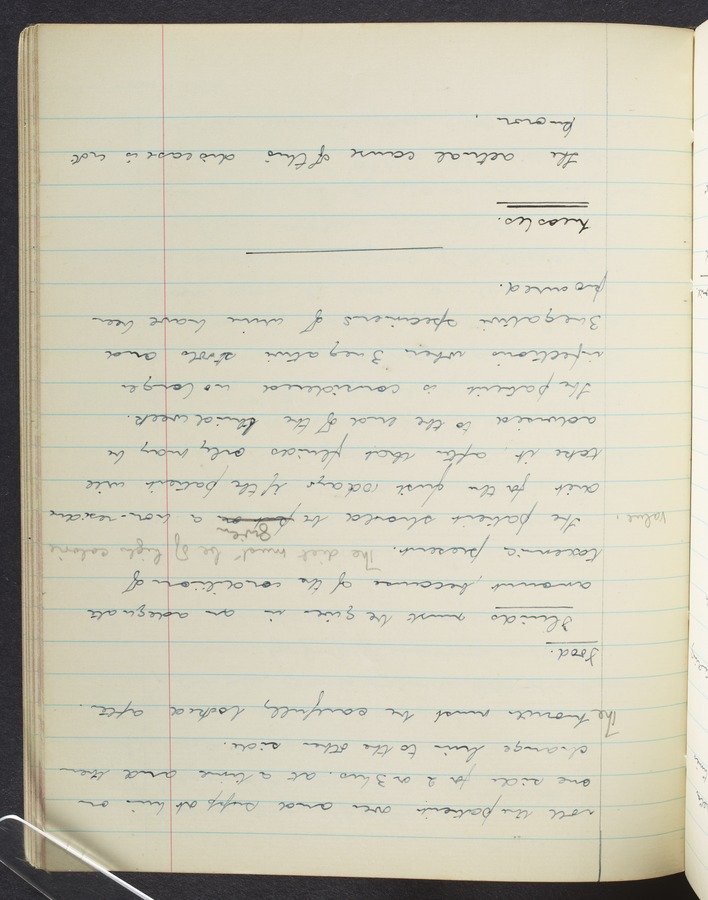 roll the patient over and support him on
one side for 2 or 3 hrs. at a time and then
change him to the other side.
The mouth must be carefully looked after.
Food.
Fluids must be given in an adequate
amount, because of the condition of
toxemia present. The diet must be of high caloric
value.
The patient should be given a non-residue
diet for the first 10 days if the patient will
take it, after that fluids only may be
advised to the end of the third week.
The patient is considered no longer
infectious when 3 negative stools and
3 negative specimens of urine have been
procured.
Measles.
The actual cause of this disease is not
known.